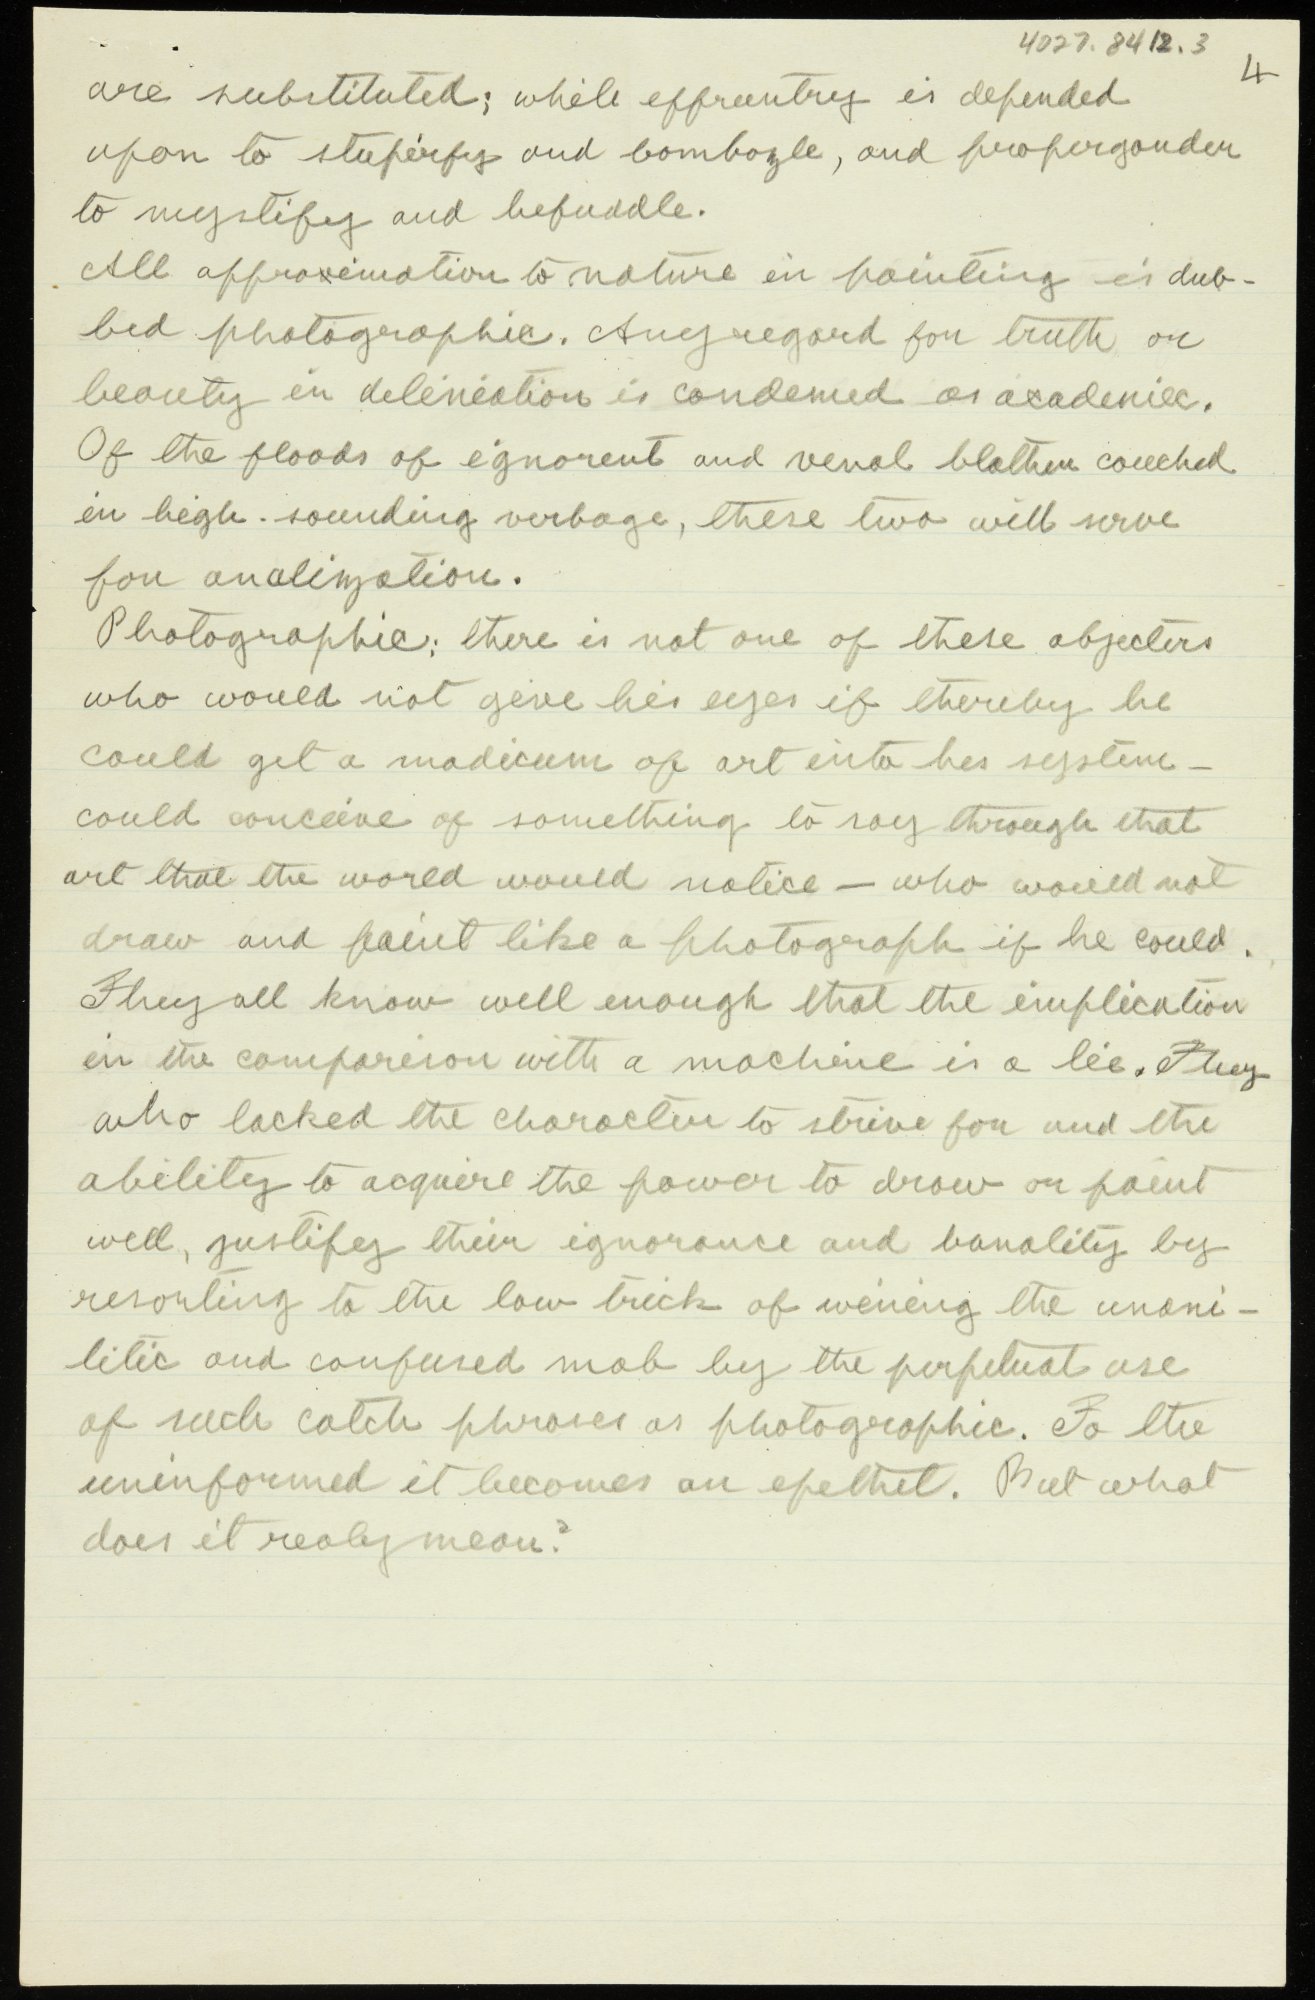 4027.8412.3
4
are substituted; while effrontry is depended
upon to stupirfy and bombozle, and propergander
to mystify and befuddle.
All approximation to nature in painting is dub-
bed photographic. Any regard for truth or
beauty in deliniation is condemed as academic.
Of the floods of ignorent and venal blather couched
in high-sounding verbage, these two will serve
for analization.
Photographic; there is not one of these objecters
who would not give his eyes if thereby he
could get a modicum of art into his system -
could conceive of something to say through that
art that the world would notice - who would not
draw and paint like a photograph if he could.
They all know well enough that the implication
in the comparison with a machine is a lie. They
who lacked the character to strive for and the
ability to acquire the power to draw or paint
well, justify their ignorance and banality by
resorting to the low trick of wining the unani-
litic and confused mob by the perpetuat use
of such catch phrases as photographic. To the
uninformed it becomes an epethet. But what
does it realy mean?